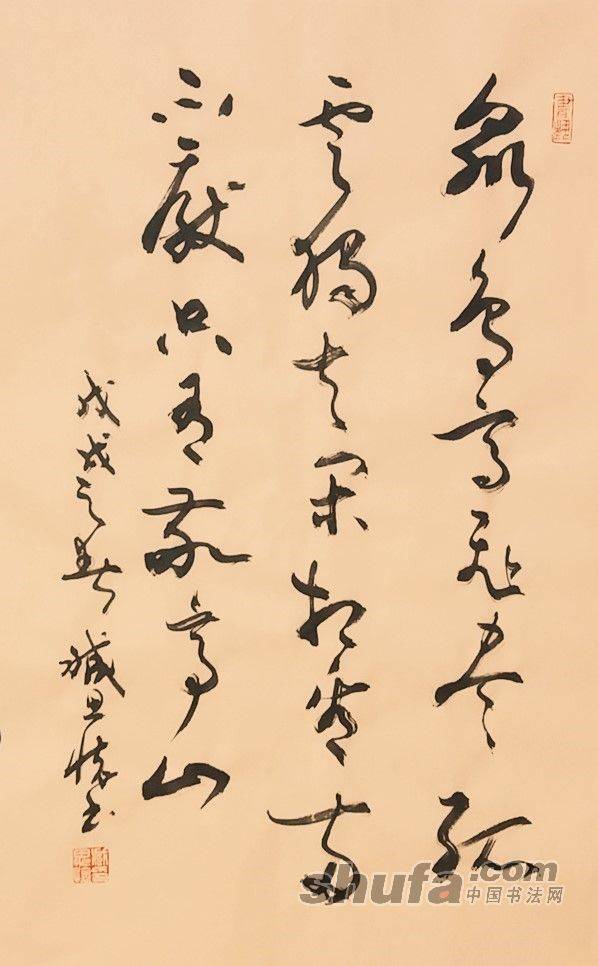 眾鳥高飛盡孤
雲獨去閑相看兩
不厭只有敬亭山
戊戌之春 臧書
shufa.com
中国书法网